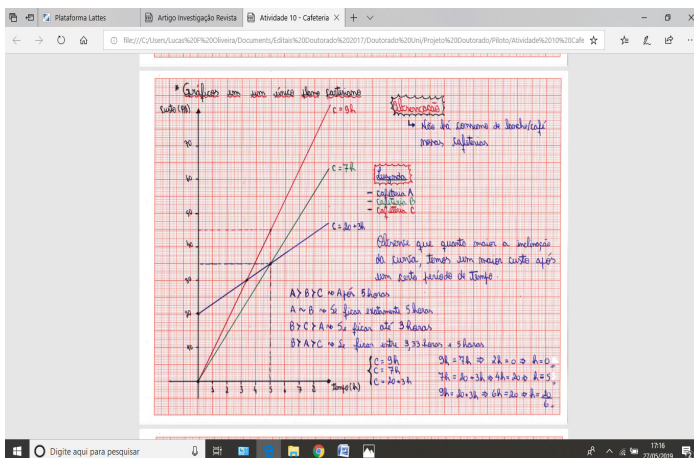 Plataforma Lattes
Artigo Investigação Revista
Atividade 10 - Cafeteria
file:///C:/Users/Lucas%20F%20Oliveira/Documents/Editais%20Doutorado%202017/Doutorado%20Uni/Projeto%20Doutorado/Piloto/Atividade%2010%20Cafe
* Gráficos em um único plano cartesiano
Custo (R$)
C = 9h
Observação
↳ Não há consumo de lanche/café
nessas cafeterias
70
60
50
40
30
20
10
C = 7h
Legenda
- cafeteria A
- cafeteria B
- cafeteria C
C = 20 + 3h
Observe que quanto maior a inclinação
da curva, temos um maior custo após
um certo período de Tempo.
A > B > C → Após 5 horas
A ~ B → Se ficar exatamente 5 horas
B > C > A → Se ficar até 3 horas
B > A > C → Se ficar entre 3,33 horas e 5 horas
1 2 3 4 5 6 7 8
Tempo (h)
C = 9h
C = 7h
C = 20 + 3h
9h = 7h ⇒ 2h = 0 ⇒ h = 0
7h = 20 + 3h ⇒ 4h = 20 ⇒ h = 5
9h = 20 + 3h ⇒ 6h = 20 ⇒ h = 20
6
Digite aqui para pesquisar
17:16
27/05/2019